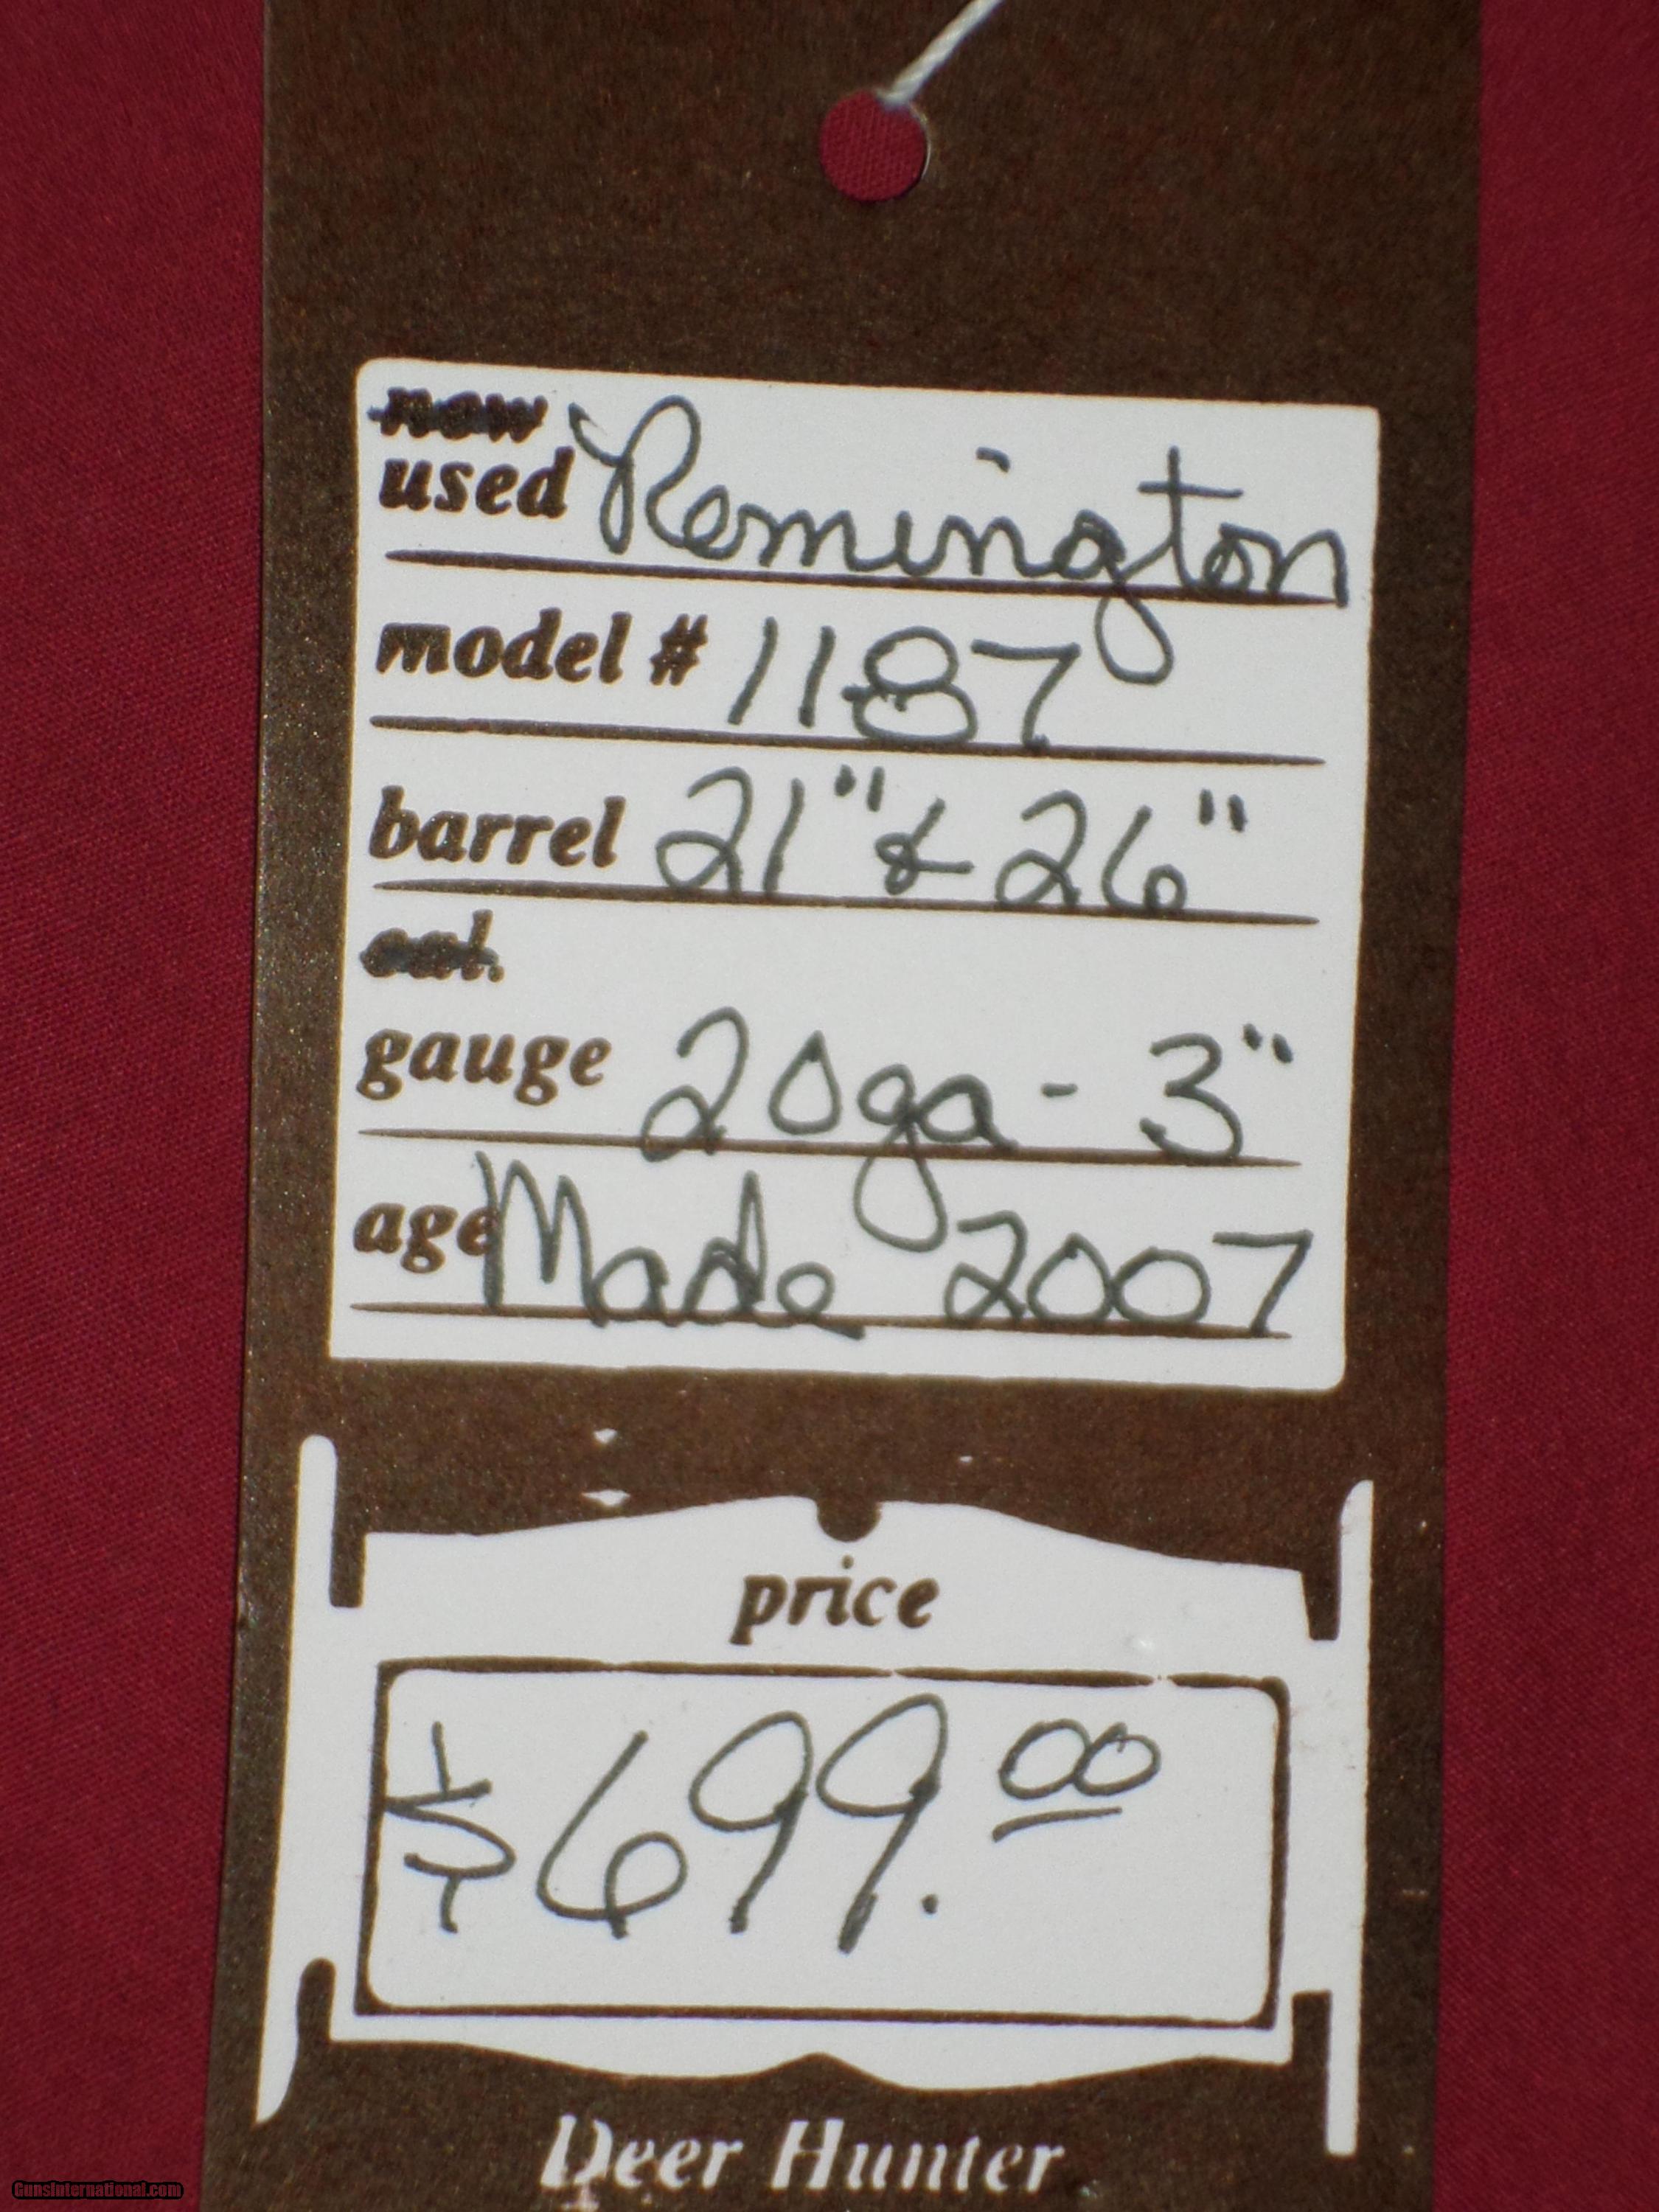 new
used Remington
model # 11-87
barrel 21" & 26"
cal.
gauge 20ga - 3"
age Made 2007
price
$699.00
Deer Hunter
GunsInternational.com